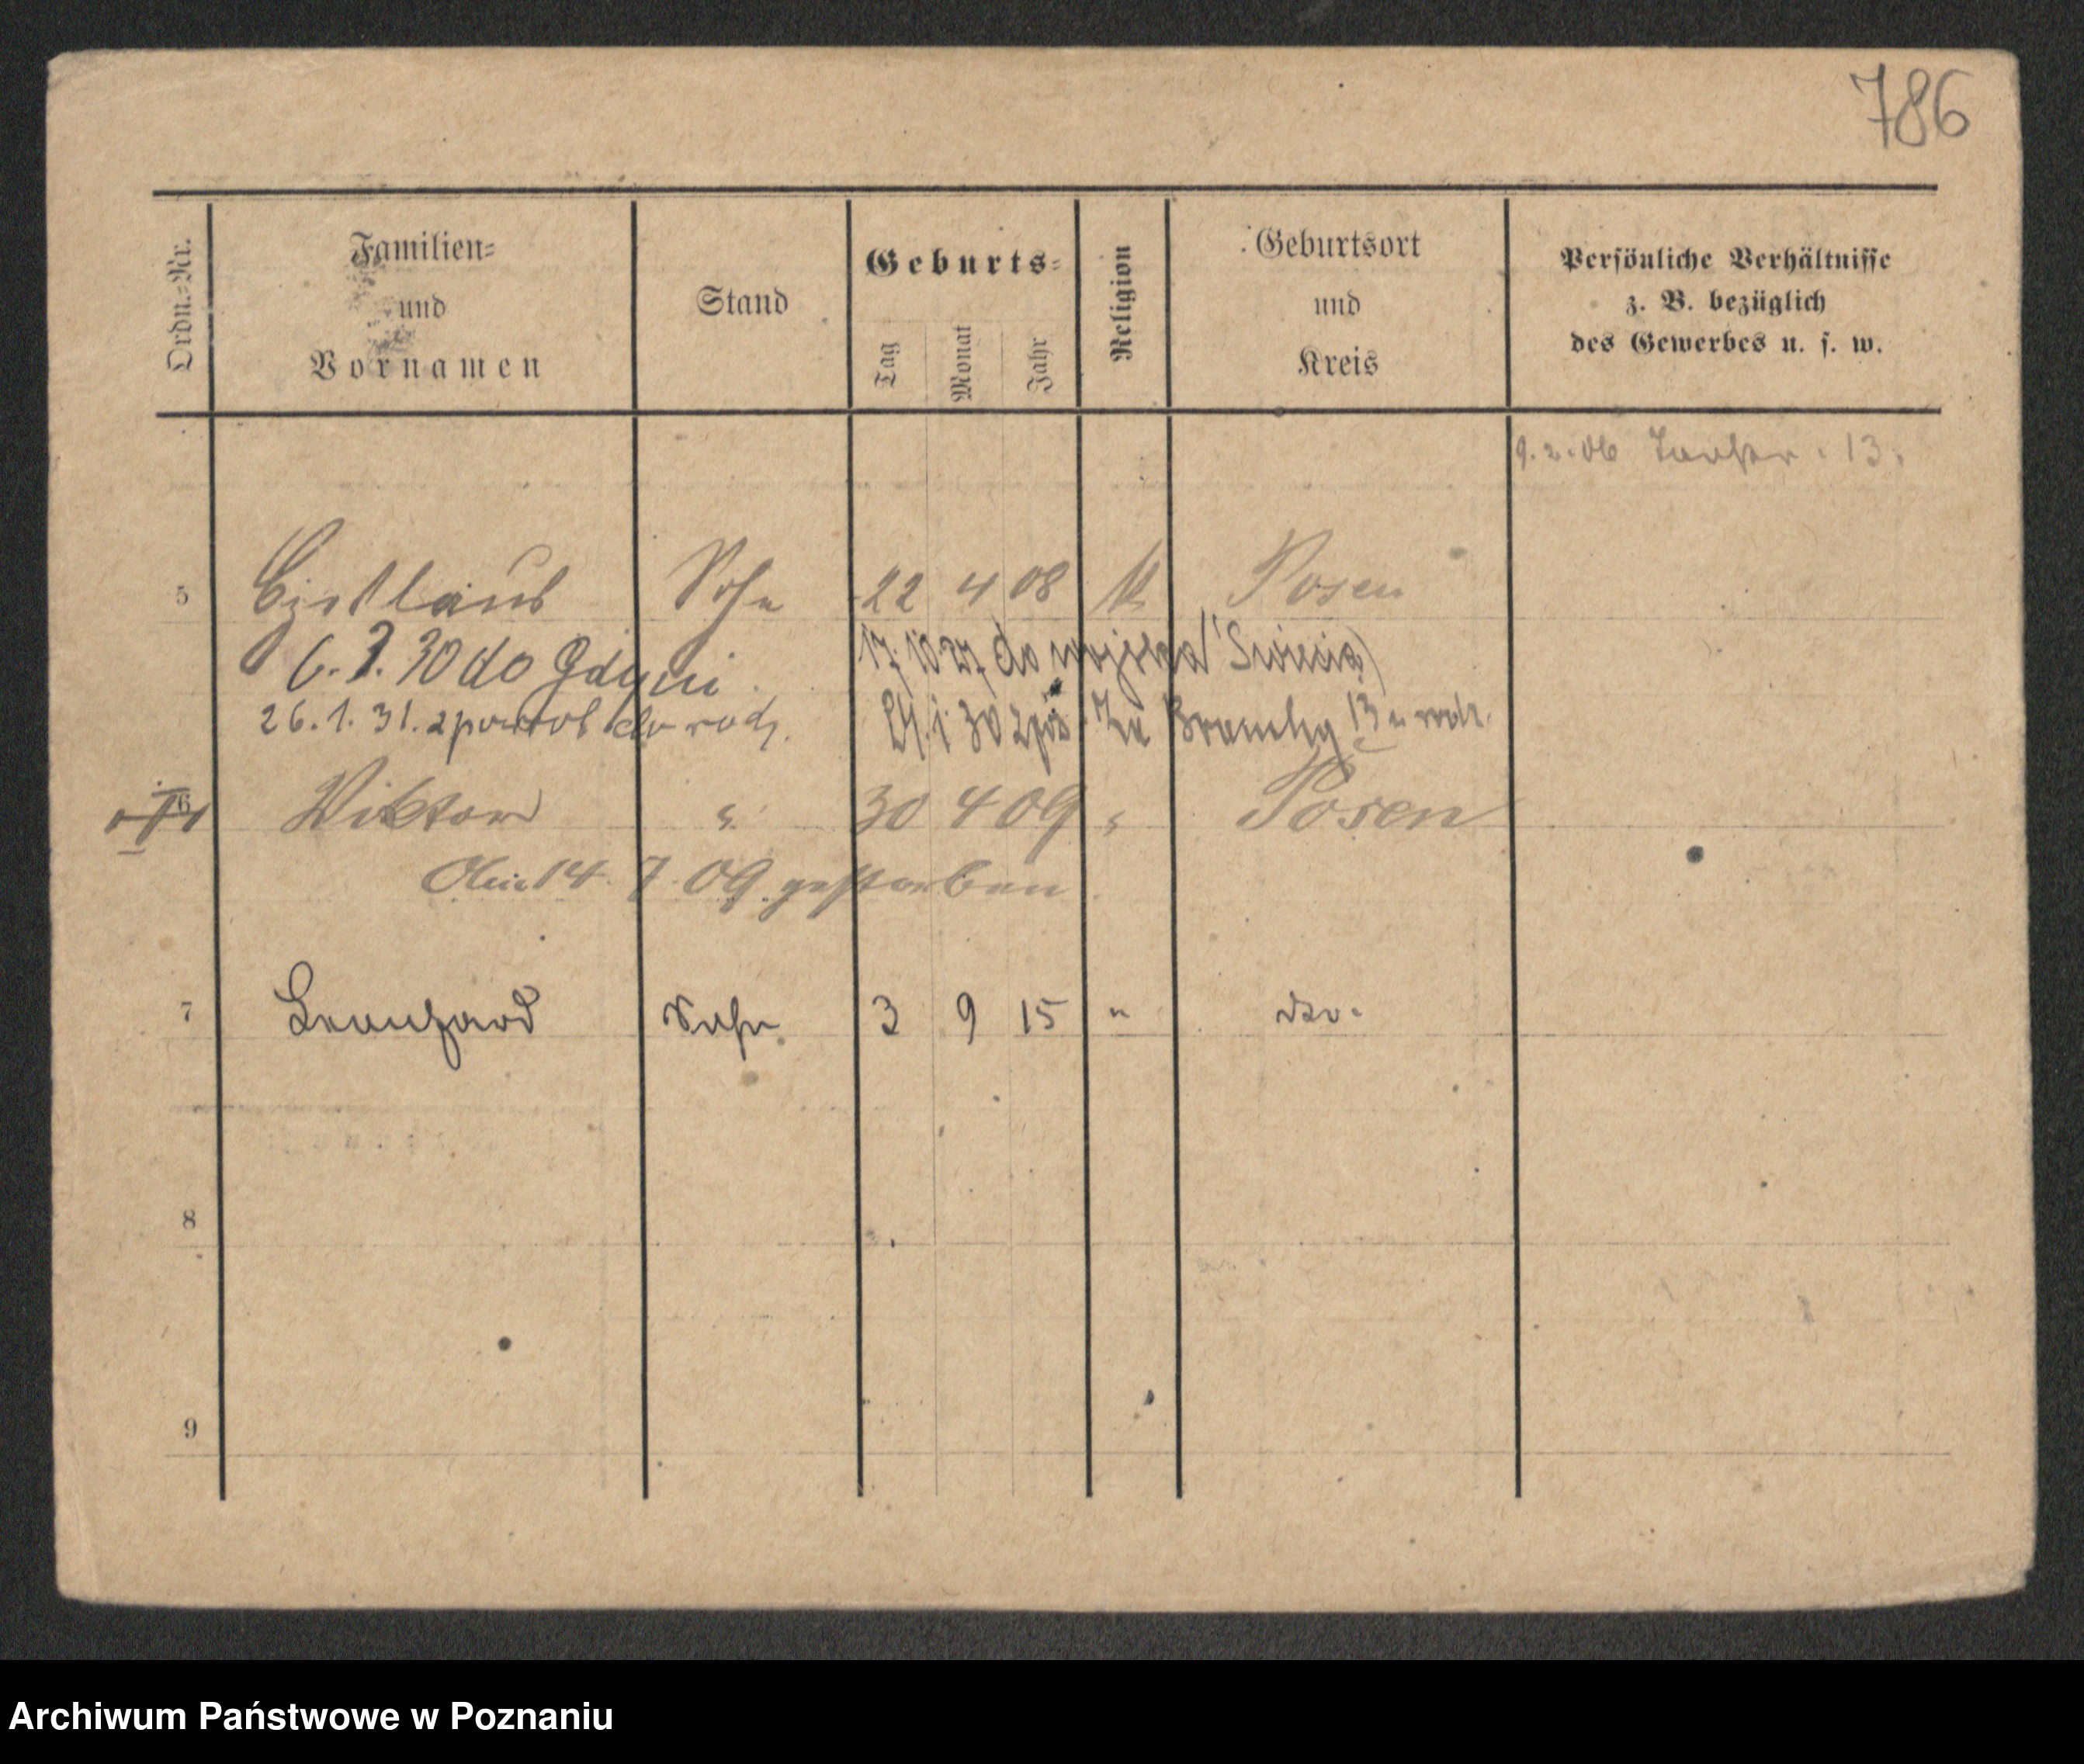 786
Ordn.-Nr.
Familien-
und
Vornamen
Stand
Geburts-
Tag
Monat
Jahr
Religion
Geburtsort
und
Kreis
Persönliche Verhältnisse
z. B. bezüglich
des Gewerbes u. s. w.
9. 2. 06 13.
5 Sohn 22 4 08 k Posen
6. 3. 30 do Gdyni
17. 10. 27 do wojska
26. 1. 31. zpowrot do rodz.
1. 30 Za Bramką 13 u rodz.
6 Wiktor " 30 4 09 " Posen
14. 7. 09. gestorben
7 Leonhard Sohn 3 9 15 " do.
8
9
Archiwum Państwowe w Poznaniu